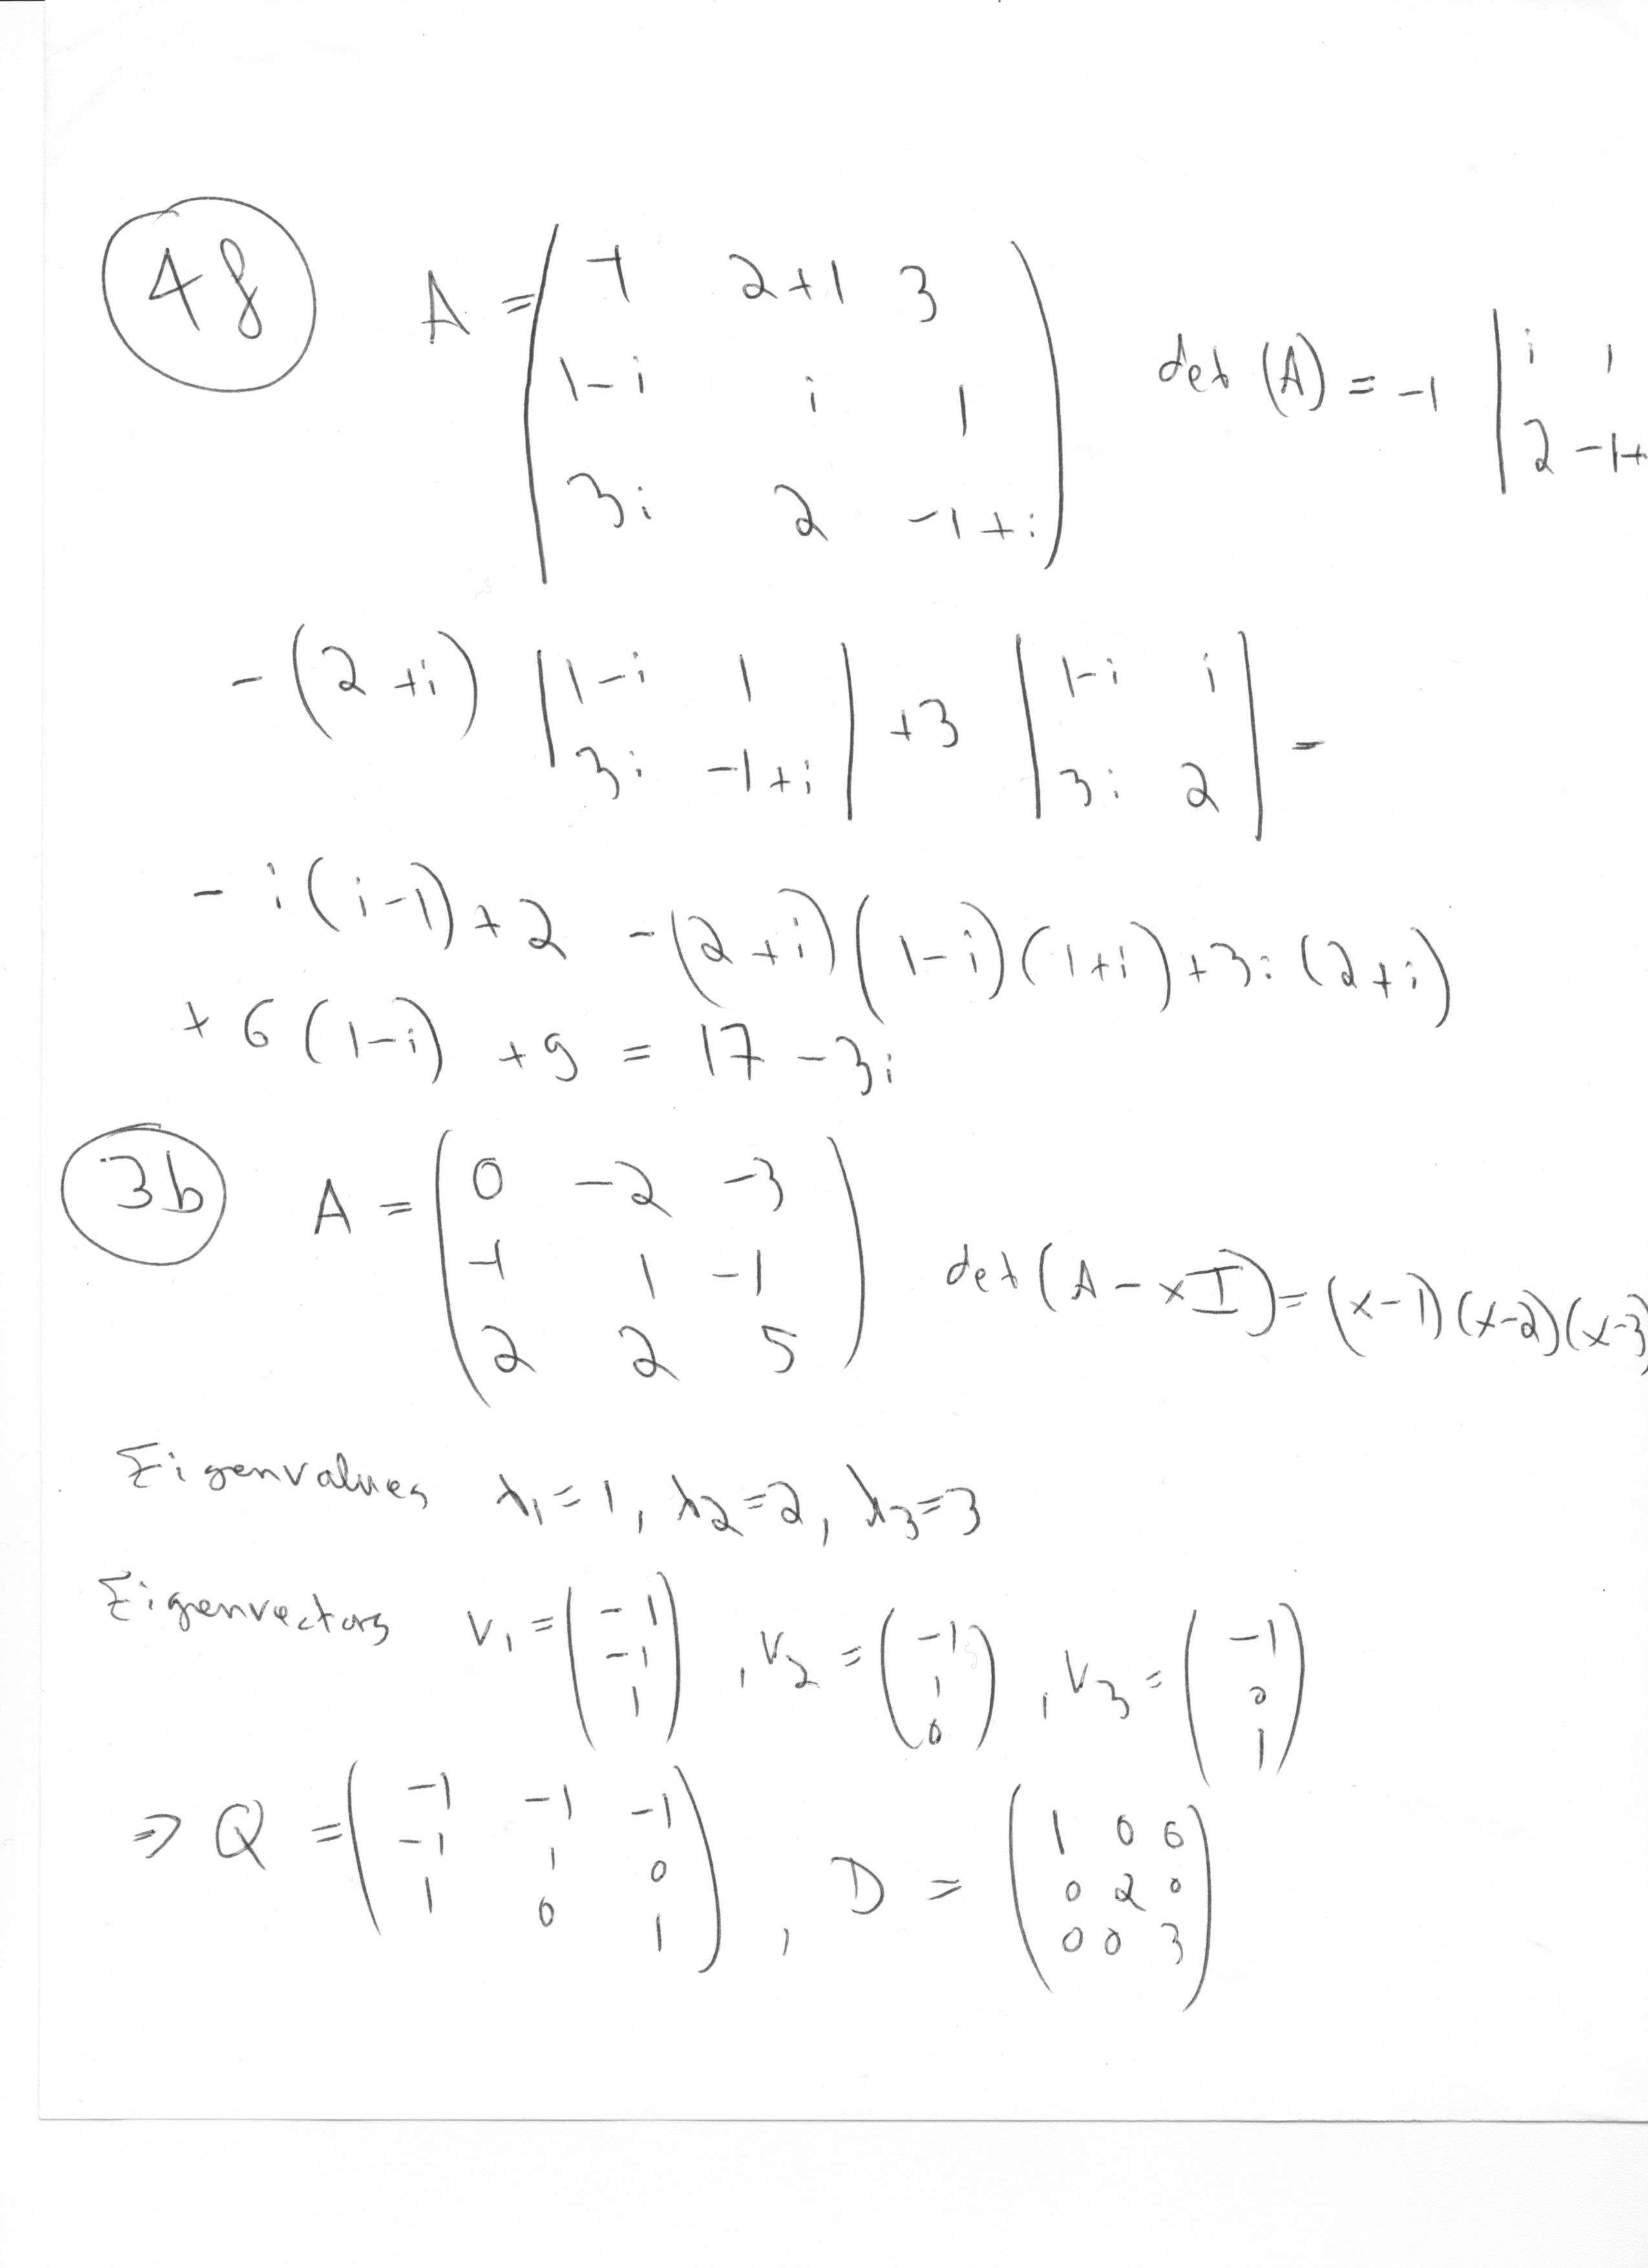 4f A = ( -1 2+1 3
1-i i 1
3i 2 -1+i ) det (A) = -1 | i 1
2 -1+
- (2+i) | 1-i 1
3i -1+i | +3 | 1-i i
3i 2 | -
- i(i-1) + 2 - (2+i)(1-i)(1+i) + 3i(2+i)
+ 6(1-i) + 9 = 17 - 3i
3b A = ( 0 -2 -3
-1 1 -1
2 2 5 ) det (A - xI) = (x-1)(x-2)(x-3
Eigenvalues λ1 = 1, λ2 = 2, λ3 = 3
Eigenvectors v1 = ( -1
-1
1 ), v2 = ( -1
1
0 ), v3 = ( -1
0
1 )
⇒ Q = ( -1 -1 -1
-1 1 0
1 0 1 ), D = ( 1 0 0
0 2 0
0 0 3 )